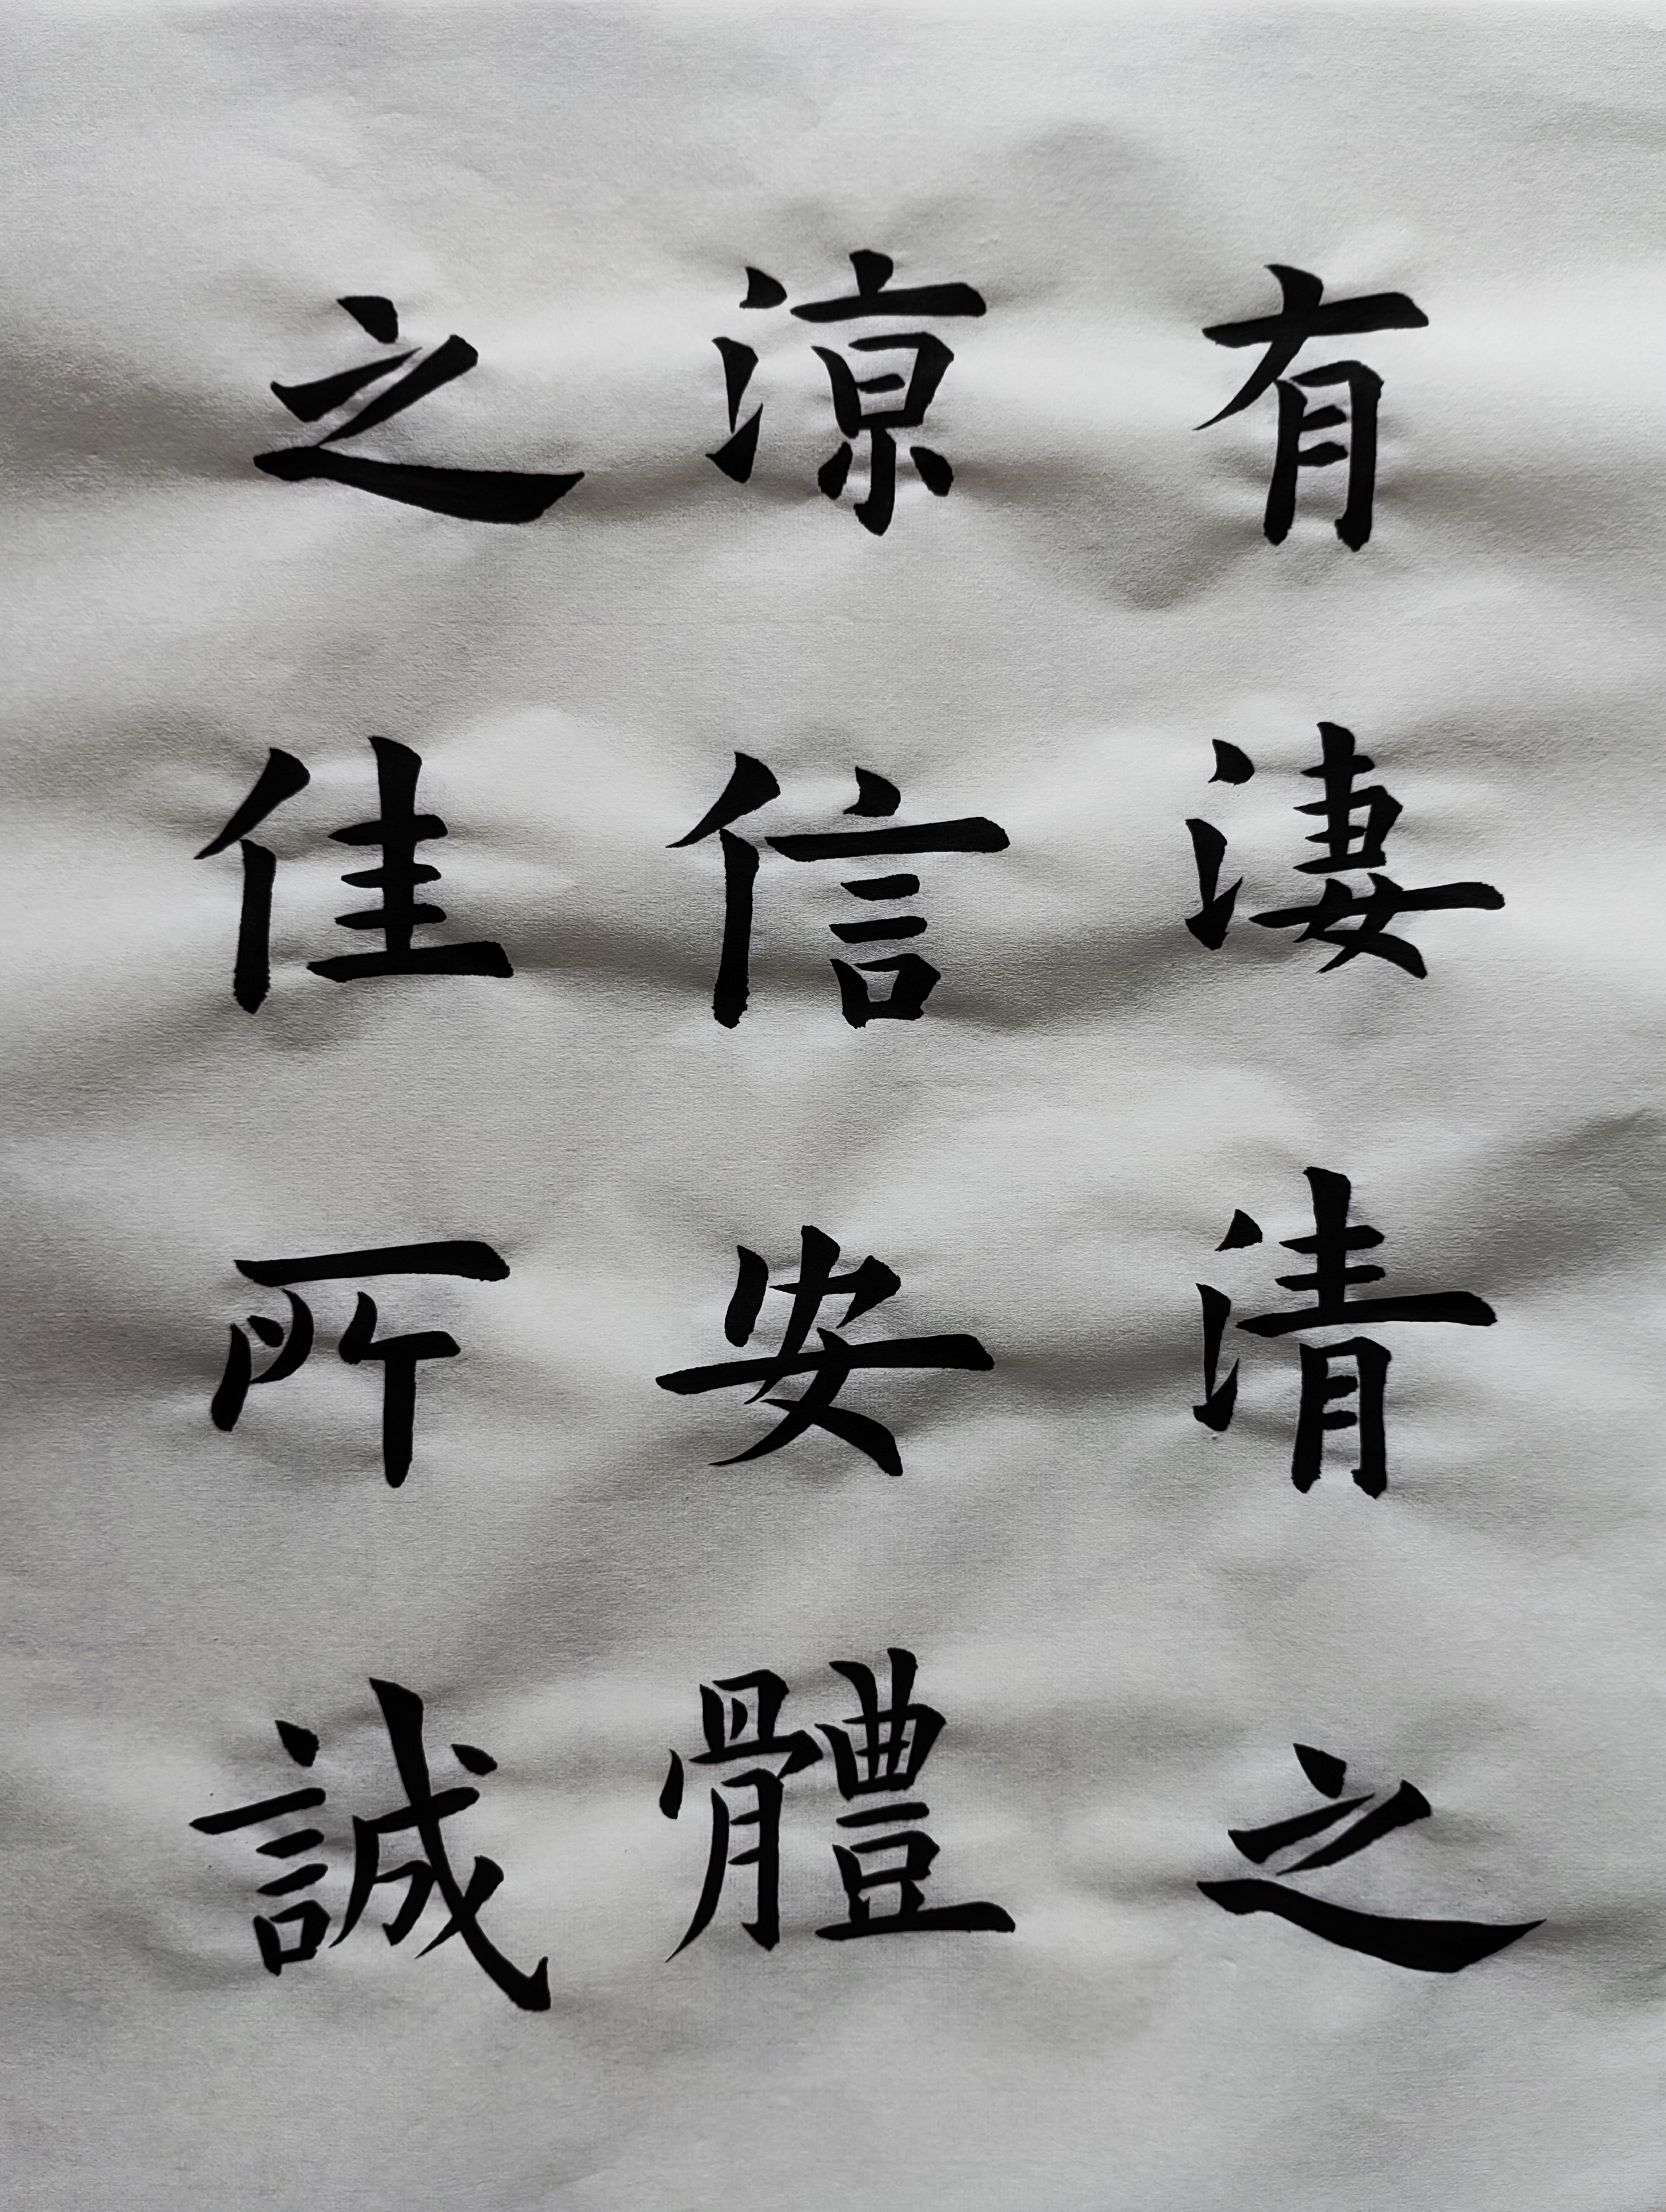 有淒清之
涼信安體
之佳所誠